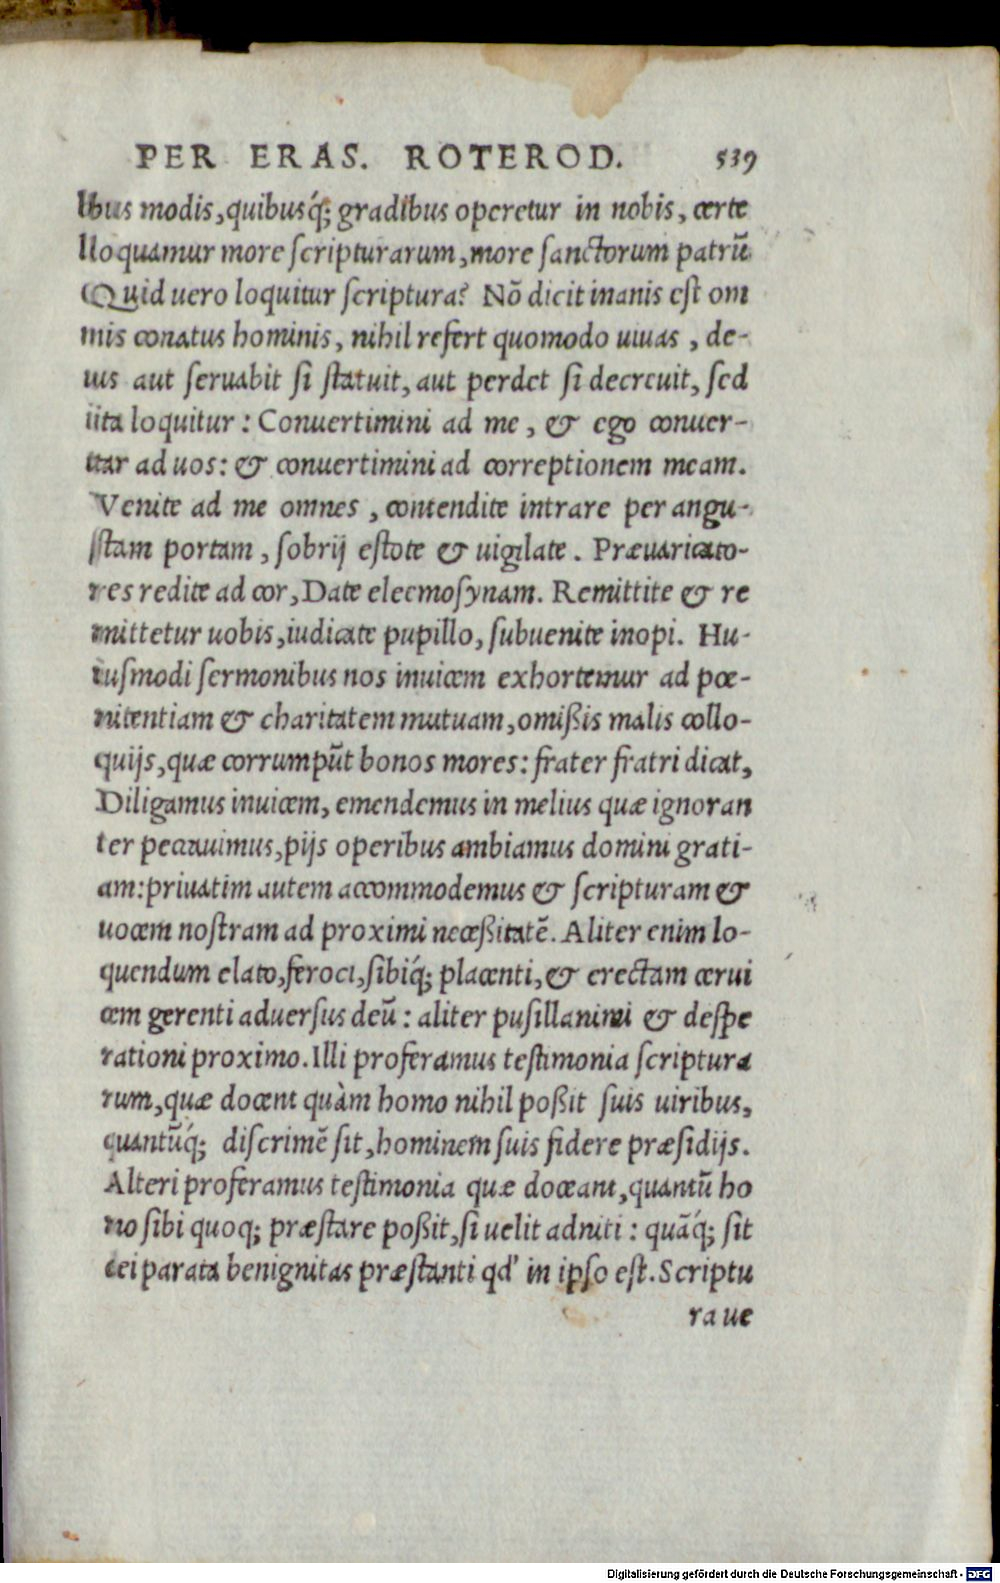 PER ERAS. ROTEROD. 539
ibus modis, quibusq́; gradibus operetur in nobis, certe
loquamur more scripturarum, more sanctorum patrũ
Quid uero loquitur scriptura? Nõ dicit inanis est om
nis conatus hominis, nihil refert quomodo uiuas, de-
us aut seruabit si statuit, aut perdet si decreuit, sed
ita loquitur: Conuertimini ad me, & ego conuer-
tar ad uos: & conuertimini ad correptionem meam.
Venite ad me omnes, contendite intrare per angu-
stam portam, sobrij estote & uigilate. Præuaricato-
res redite ad cor, Date eleemosynam. Remittite & re
mittetur uobis, iudicate pupillo, subuenite inopi. Hu-
iusmodi sermonibus nos inuicem exhortemur ad pœ-
nitentiam & charitatem mutuam, omißis malis collo-
quijs, quæ corrumpũt bonos mores: frater fratri dicat,
Diligamus inuicem, emendemus in melius quæ ignoran
ter peccauimus, pijs operibus ambiamus domini grati-
am: priuatim autem accommodemus & scripturam &
uocem nostram ad proximi neceßitatẽ. Aliter enim lo-
quendum elato, feroci, sibiq́; placenti, & erectam cerui
cem gerenti aduersus deũ: aliter pusillanimi & despe
rationi proximo. Illi proferamus testimonia scriptura
rum, quæ docent quàm homo nihil poßit suis uiribus,
quantũq́; discrimẽ sit, hominem suis fidere præsidijs.
Alteri proferamus testimonia quæ doceant, quantũ ho
mo sibi quoq; præstare poßit, si uelit adniti: quãq́; sit
dei parata benignitas præstanti qd' in ipso est. Scriptu
ra ue
Digitalisierung gefördert durch die Deutsche Forschungsgemeinschaft - DFG